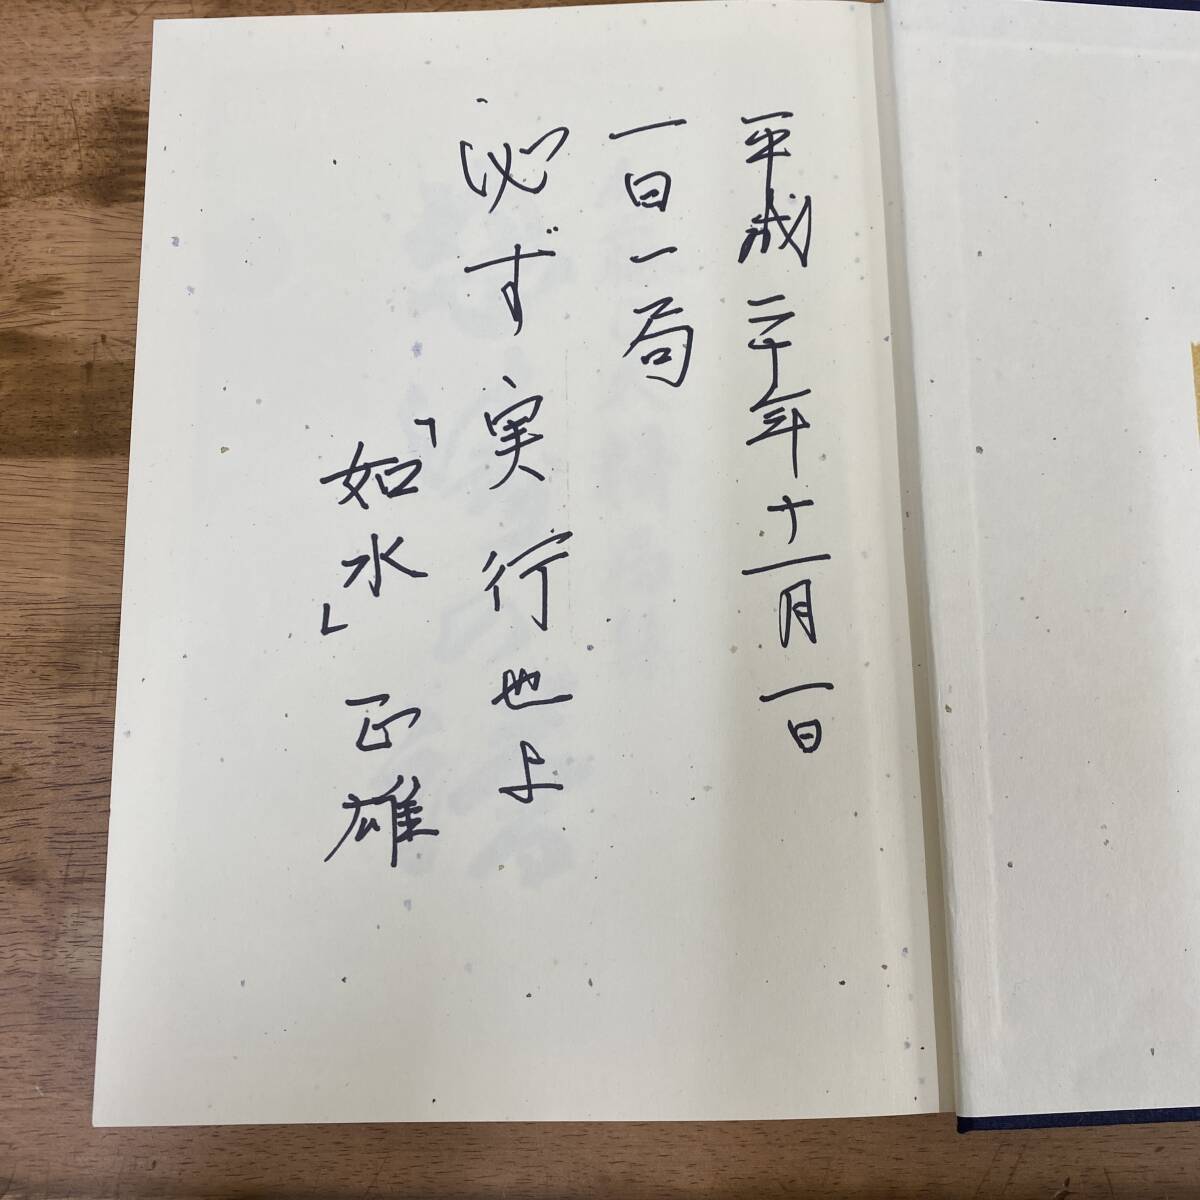 平成二十年十一月一日
一日一局
必ず実行也よ
「如水」正雄